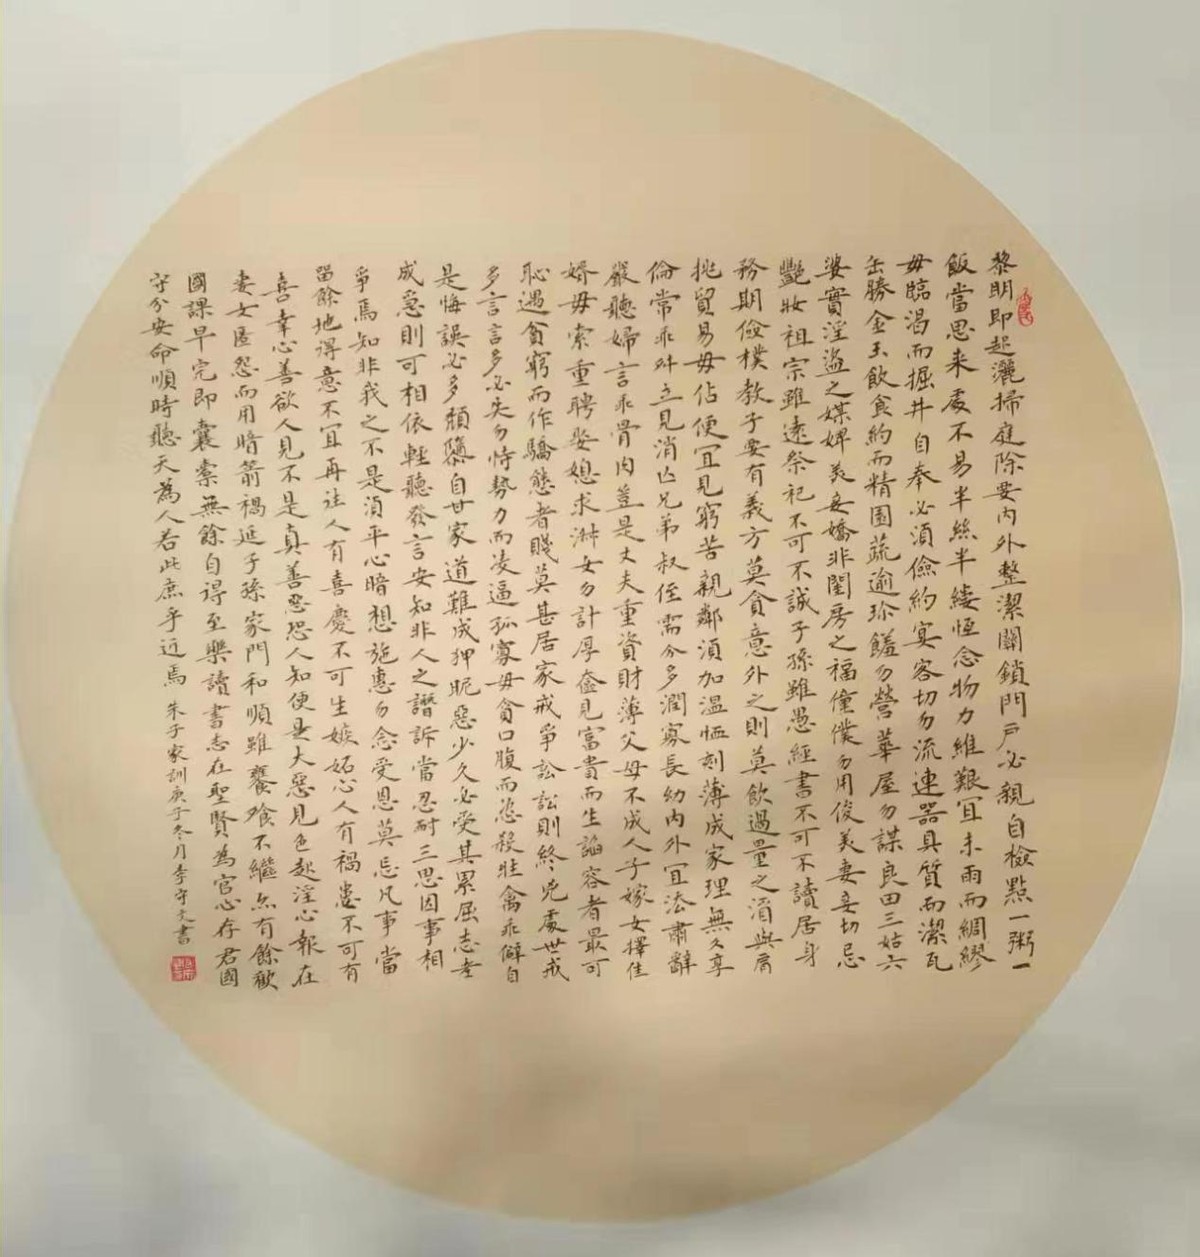 黎明即起灑掃庭除要內外整潔關鎖門戶必親自檢點一粥一
飯當思来處不易半絲半縷恆念物力維艱宜未雨而綢繆
毋臨渴而掘井自奉必須儉約宴客切勿流連器具質而潔瓦
缶勝金玉飲食約而精園蔬逾珍饈勿營華屋勿謀良田三姑六
婆實淫盜之媒婢美妾嬌非閨房之福僮僕勿用俊美妻妾切忌
豔妝祖宗雖遠祭祀不可不誠子孫雖愚經書不可不讀居身
務期儉樸教子要有義方莫貪意外之則莫飲過量之酒與肩
挑貿易毋佔便宜見窮苦親鄰須加温恤刻薄成家理無久享
倫常乖舛立見消亾兄弟叔侄需分多潤寡長幼內外宜法肅辭
嚴聽婦言乖骨肉豈是丈夫重資財薄父母不成人子嫁女擇佳
婿毋索重聘娶媳求淑女勿計厚奩見富貴而生諂容者最可
恥遇貧窮而作驕態者賤莫甚居家戒爭訟訟則終兇處世戒
多言言多必失勿恃勢力而凌逼孤寡毋貪口腹而恣殺牲禽乖僻自
是悔誤必多頹隳自甘家道難成狎昵惡少久必受其累屈志老
成急則可相依輕聽發言安知非人之譖訴當忍耐三思因事相
爭焉知非我之不是須平心暗想施惠勿念受恩莫忘凡事當
留餘地得意不宜再往人有喜慶不可生嫉妬心人有禍患不可有
喜幸心善欲人見不是真善惡恐人知便是大惡見色起淫心報在
妻女匿怨而用暗箭禍延子孫家門和順雖饔飧不繼亦有餘歡
國課早完即囊橐無餘自得至樂讀書志在聖賢為官心存君國
守分安命順時聽天為人若此庶乎近焉 朱子家訓庚子冬月李守文書